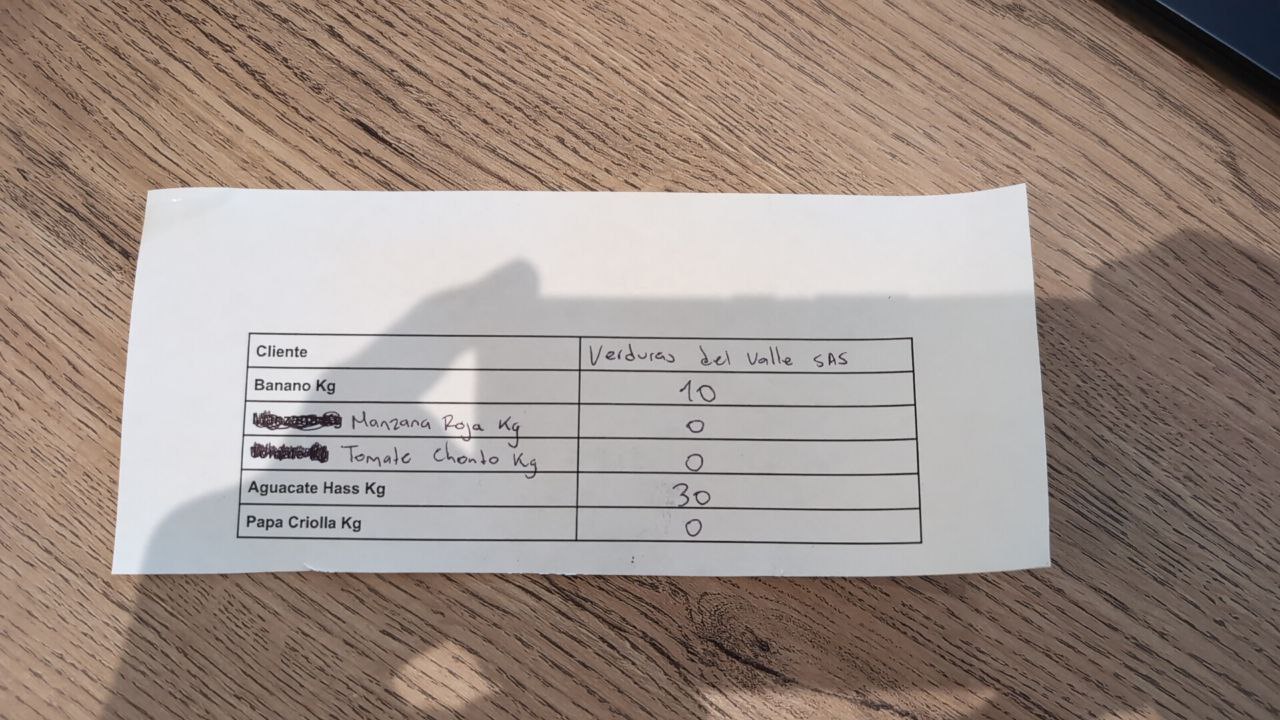 Cliente Verduras del Valle SAS
Banano Kg 10
Manzana Roja Kg 0
Tomate Chonto Kg 0
Aguacate Hass Kg 30
Papa Criolla Kg 0